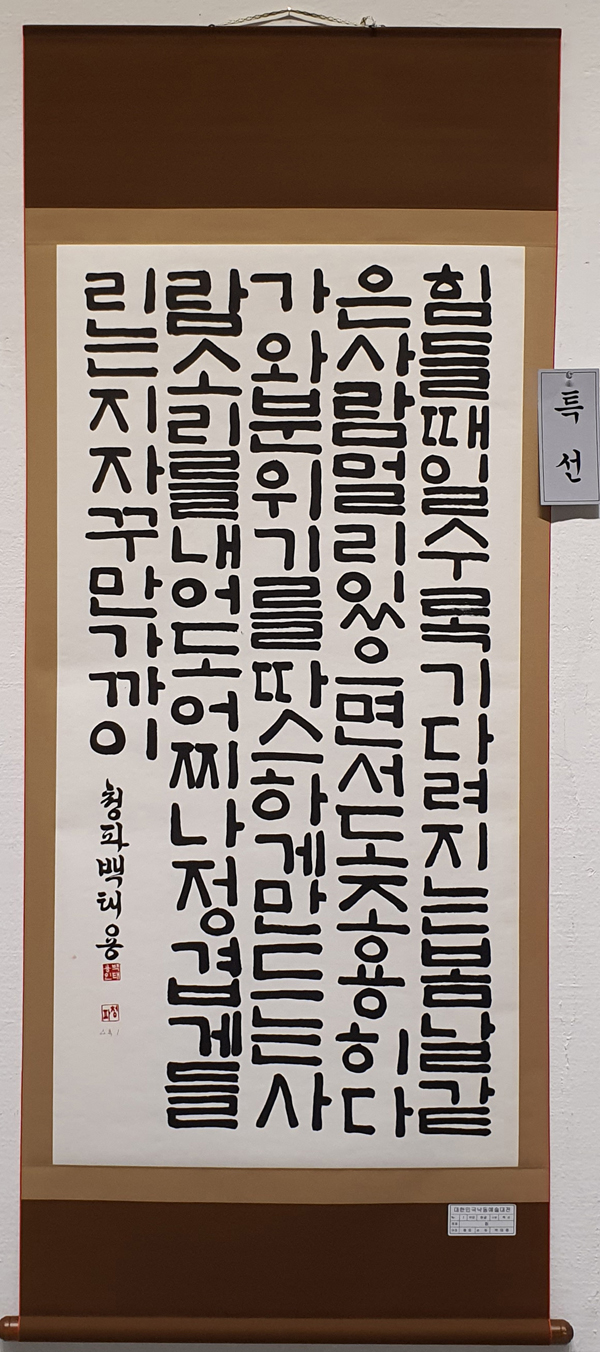 힘들때일수록기다려지는봄날같
은사람멀리있으면서도조용히다
가와분위기를따스하게만드는사
람소리를내어도어찌나정겹게들
리는지자꾸만가까이
청파백태용
특선